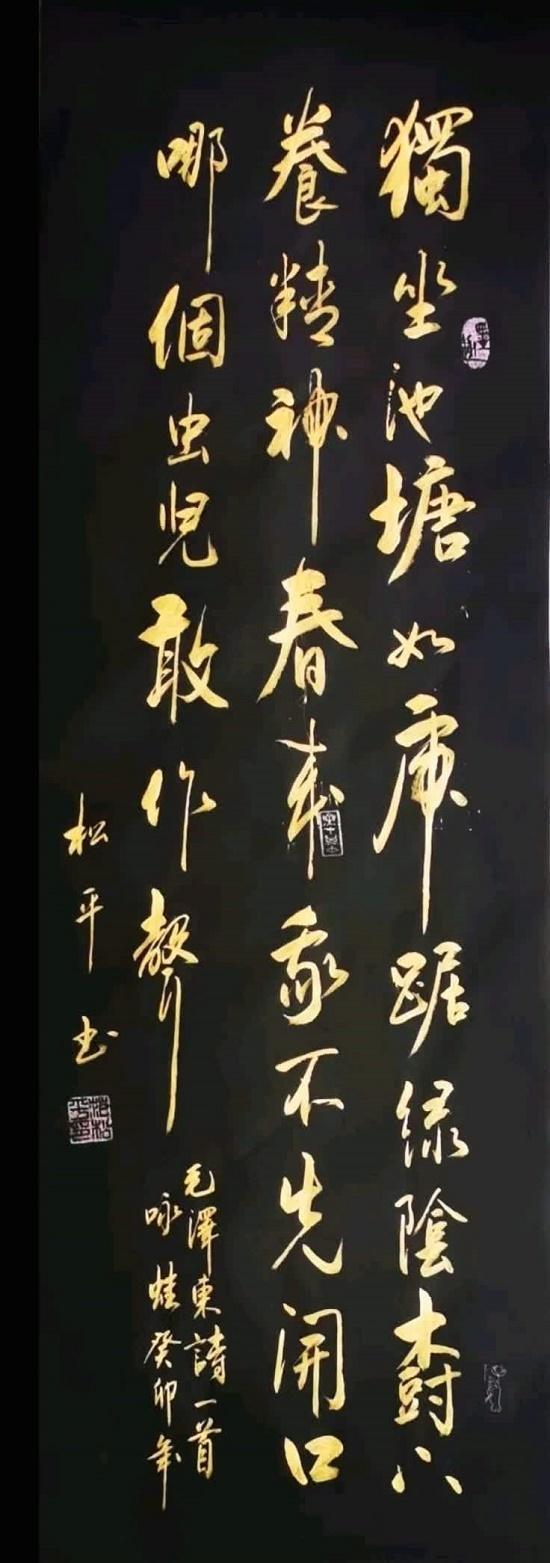 獨坐池塘如虎踞綠陰樹下
養精神春來我不先開口
哪個虫児敢作聲
毛澤東詩一首
咏蛙癸卯年
松平书